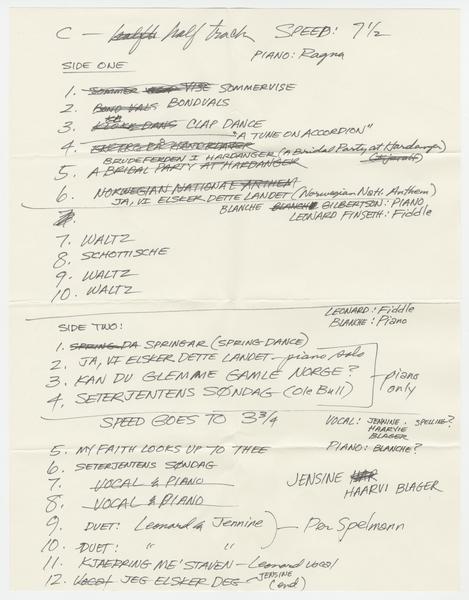 C — half track SPEED: 7 1/2
PIANO: Ragna
SIDE ONE
1. SOMMER VISE SOMMERVISE
2. BOND VALS BONDVALS
3. DANS CLAP DANCE
4. "A TUNE ON ACCORDION"
BRUDEFERDEN I HARDANGER (A Bridal Party at Hardanger)
5. A BRIDAL PARTY AT HARDANGER
6. NORWEGIAN NATIONAL ANTHEM
JA, VI ELSKER DETTE LANDET (Norwegian Natl. Anthem)
BLANCHE BLANCHE GILBERTSON: PIANO
LEONARD FINSETH: Fiddle
7.
7. WALTZ
8. SCHOTTISCHE
9. WALTZ
10. WALTZ
LEONARD: Fiddle
BLANCHE: Piano
SIDE TWO:
1. SPRING DA SPRINGAR (SPRING DANCE)
2. JA, VI ELSKER DETTE LANDET - piano solo
3. KAN DU GLEMME GAMLE NORGE?
4. SETERJENTENS SØNDAG (Ole Bull)
piano only
SPEED GOES TO 3 3/4
VOCAL: JENNINE. SPELLING?
HAARVIE
BLAGER
5. MY FAITH LOOKS UP TO THEE
PIANO: BLANCHE?
6. SETERJENTENS SØNDAG
7. VOCAL & PIANO
JENSINE HAR
HAARVI BLAGER
8. VOCAL & PIANO
9. DUET: Leonard & Jennine
Per Spelmann
10. DUET: " "
11. KJAERRING ME' STAVEN - Leonard vocal
12. VOCAL JEG ELSKER DEG - JENSINE
(end)